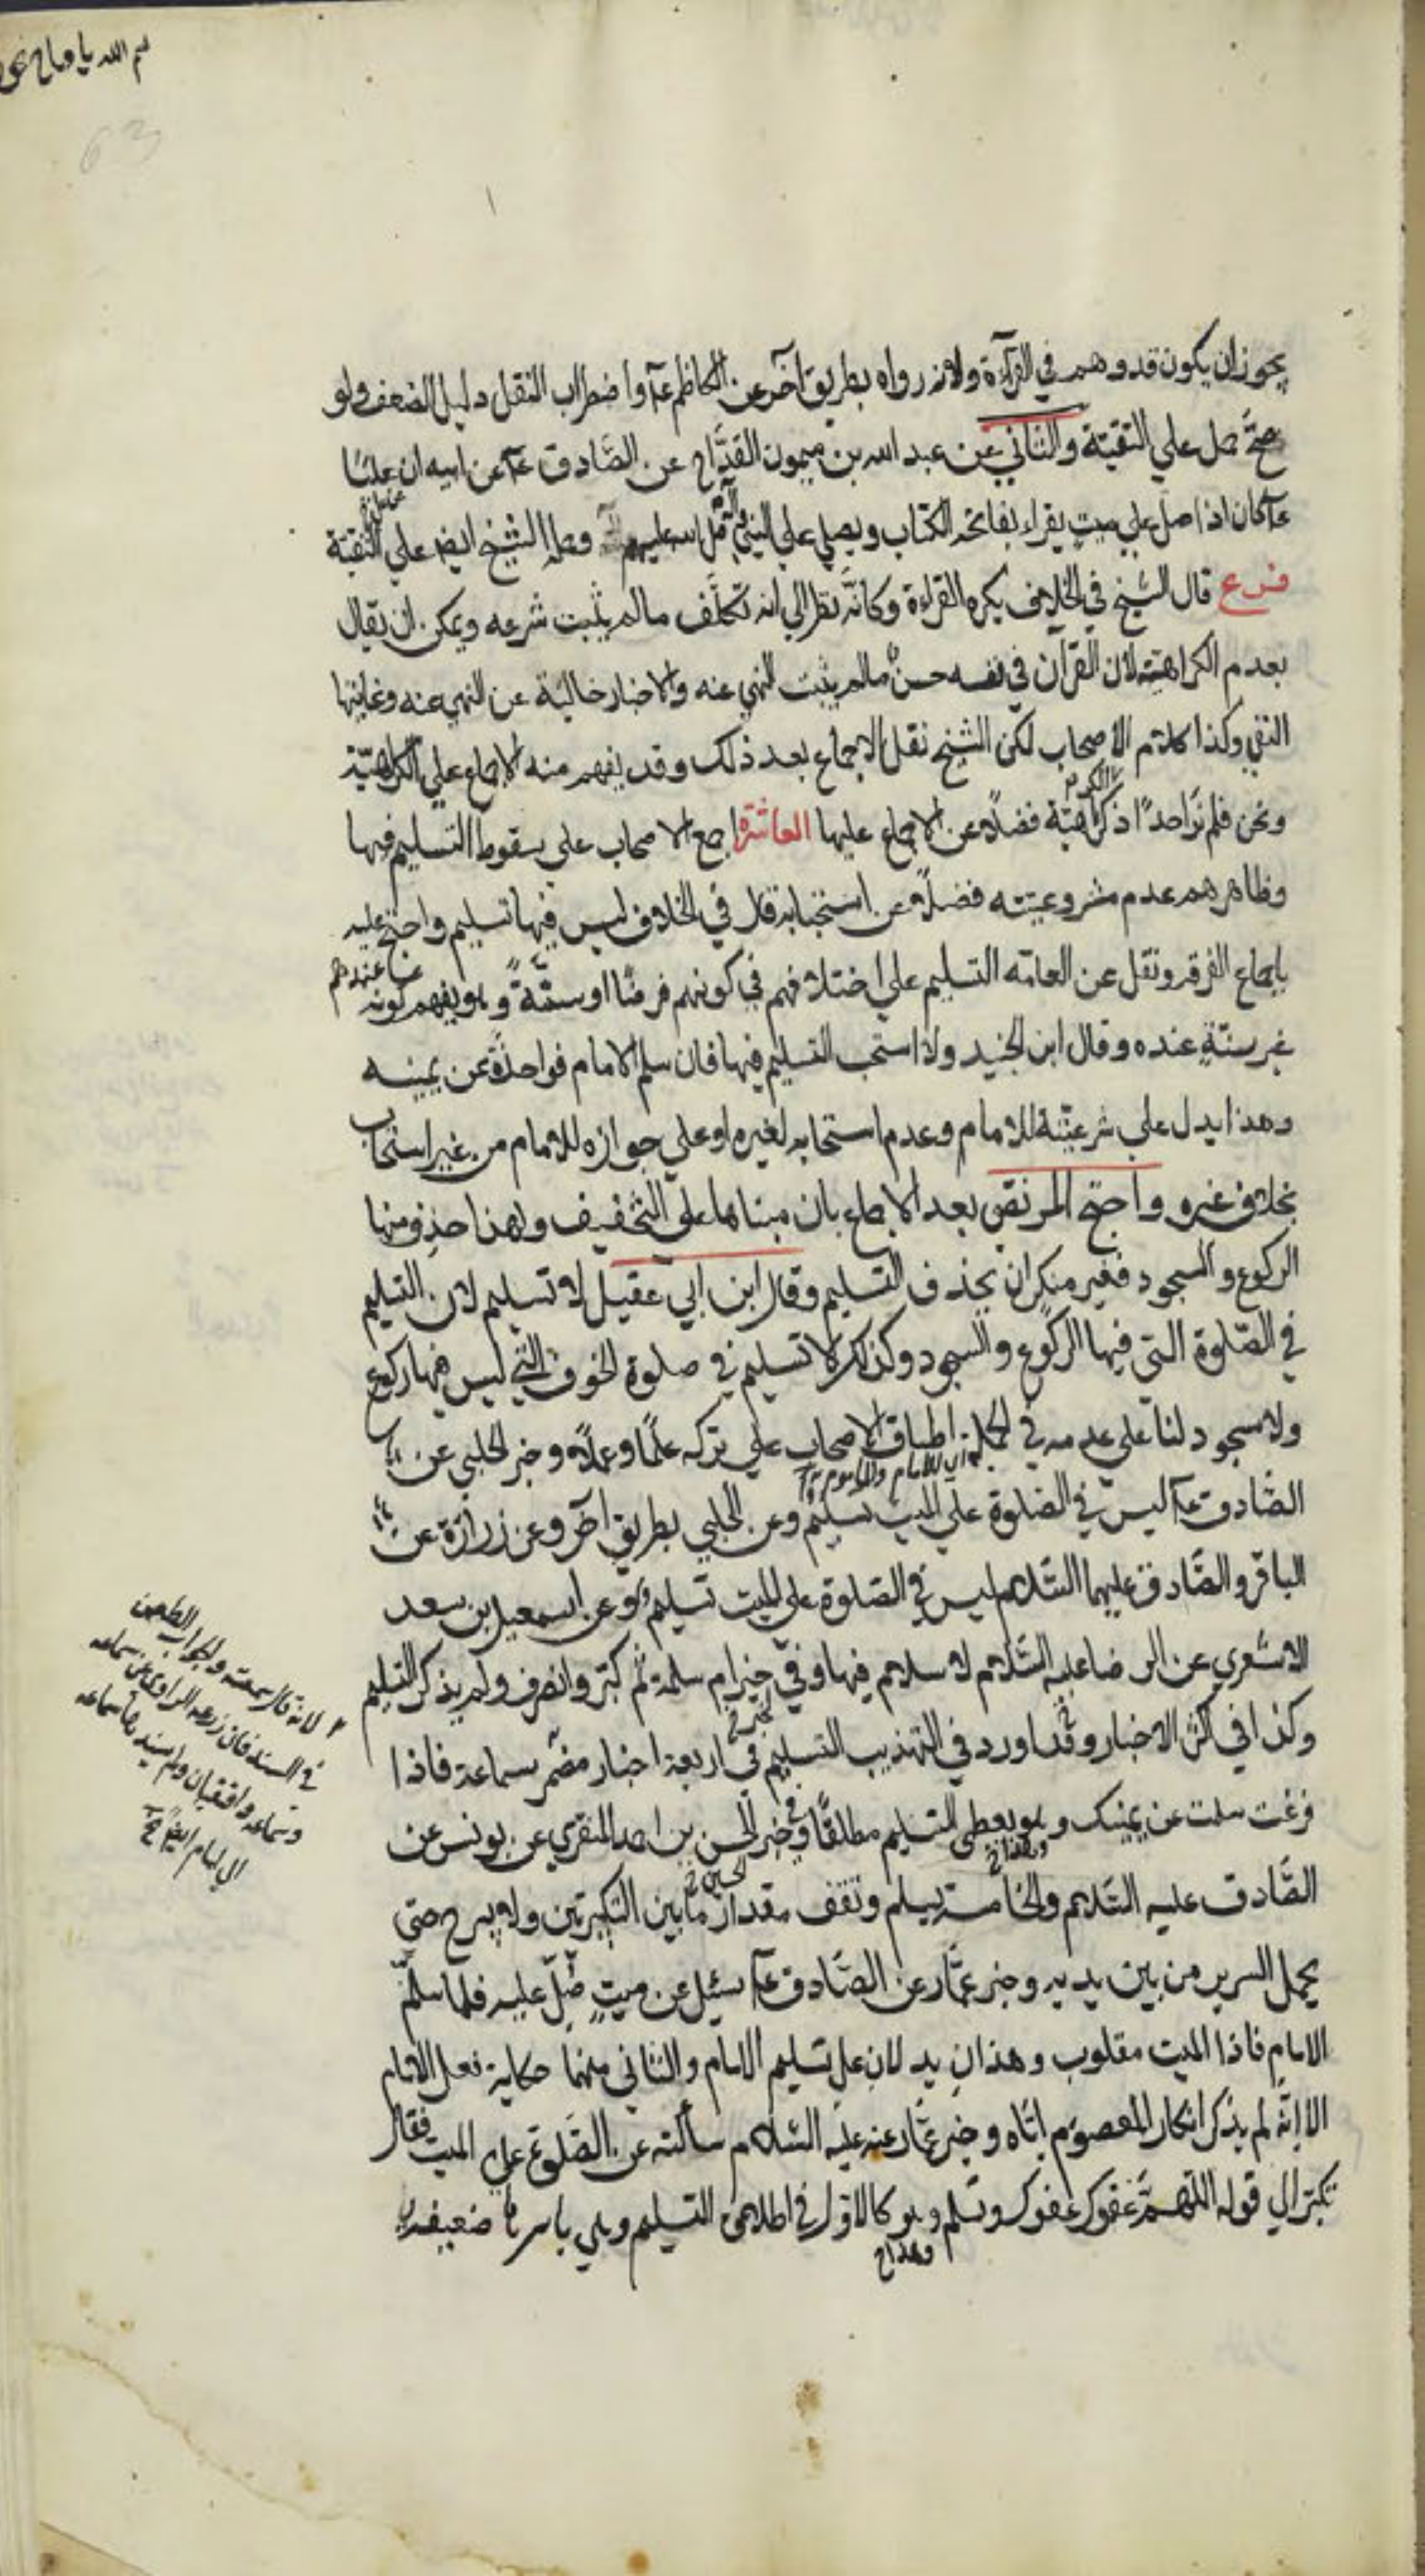 يجوز ان يكون قد وهم في القراءة ولانه رواه بطريق آخر عن الكاظم عآ واضطراب النقل دليل الضعف ولو
صحّ حمل علي التقيّة والثاني عن عبد الله بن ميمون القدّاح عن الصّادق عآ عن ابيه ان عليّا
عآ كان اذا صل علي ميت يقراء بفاتحه الكتاب ويصلي علي النبي وآله عليهم وحمله الشيخ ايضا علي التقيّة
فرع قال الشيخ في الخلاف يكره القراءة وكانّه نظر الي انه تكلّف ما لم يثبت شرعه ويمكن ان يقال
بعدم الكراهيّة لان القرآن في نفسه حسنٌ ما لم يثبت النهي عنه والاخبار خالية عن النهي عنه وغايتها
النفي وكذا كلام الاصحاب لكن الشيخ نقل الاجماع بعد ذلك وقد يفهم منه الاجماع علي الكراهيّة
ونحن فلم نر احدًا ذكر الكراهية فضلًا عن الاجماع عليها العاشرة اجمع الاصحاب علي سقوط التسليم فيها
وظاهرهم عدم مشروعيته فضلًا عن استحبابه قال في الخلاف ليس فيها تسليم واحتج عليه
باجماع الفرقه ونقل عن العامّه التسليم علي اختلافهم في كونهم فرضًا او سنّةً وهو يفهم كونه
غير سنّةٍ عنده وقال ابن الجنيد ولا استحب التسليم فيها فان سلم الامام فواحدةً عن يمينه
وهذا يدل علي شرعيّته للامام وعدم استحبابه لغيره او علي جوازه للامام من غير استحباب
بخلاف غيره واحتج المرتضي بعد الاجماع بان مبناها علي التخفيف ولهذا حذف منها
الركوع والسجود فغير منكر ان يحذف التسليم وقال ابن ابي عقيل لا تسليم لان التسليم
في الصّلوة التي فيها الركوع والسجود وكذلك لا تسليم في صلوة الخوف التي ليس فيها ركوع
ولا سجود لنا علي عدمه في الجملة اطباق الاصحاب علي تركه علمًا وعملًا وخبر الحلبي عن
اي للامام والماموم
الصّادق عآ ليس في الصّلوة علي الميت تسليم وعن الحلبي بطريق آخر وعن زرارة عن
الباقر والصّادق عليهما السّلام ليس في الصّلوة علي الميت تسليم وعن اسمعيل بن سعد
الاشعري عن الرضا عليه السّلام لا سلام فيها وفي خبر ام سلمة ثم كبّر وانصرف ولم يذكر التسليم
وكذا في اكثر الاخبار وقد اورد في التهذيب التسليم في اربعة اخبار مضمر سماعة فاذا
فرغت سلمت عن يمينك وهو يعطي التسليم مطلقًا وفي خبر الحسن بن احمد المنقري عن يونس عن
وهذا خ
الحسين خ
الصّادق عليه السّلام والخامسة يسلم ونقف مقدار ما بين التكبرتين ولا يبرح حتى
يحمل السرير من بين يديه وخبر عمّار عن الصّادق عآ سئل عن ميتٍ صُلّي عليه فلما سلّم
الامام فاذا الميت مقلوب وهذان يدلان علي تسليم الامام والثاني منهما حكاية فعل الامام
الا انّه لم يذكر انكار المعصوم ايّاه وخبر عمّار عنه عليه السّلام سألته عن الصّلوة علي الميت فقال
تكبّر الي قوله اللّهمّ عفوك عفوك وتسلم وهو كالاول في اطلاق التسليم وهي باسرها ضعيفة
وهذا خ
لانه قال سمعته ولجواب الطعن
في السند فان زرعه الراوي عن سماعه
وسماعه واقفيان ولم يسندها سماعه
الي امام ايضا
63